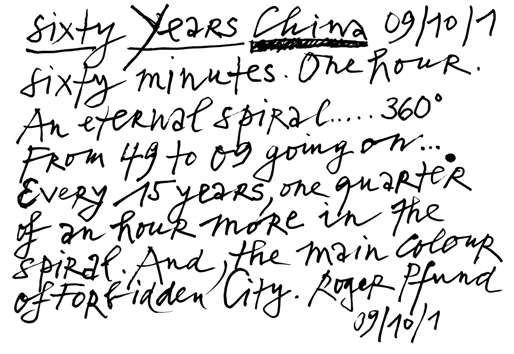 sixty Years China 09/10/1
sixty minutes. One hour.
An eternal spiral..... 360°
From 49 to 09 going on...
Every 15 years, one quarter
of an hour more in the
spiral. And, the main colour
of Forbidden City. Roger Pfund
09/10/1